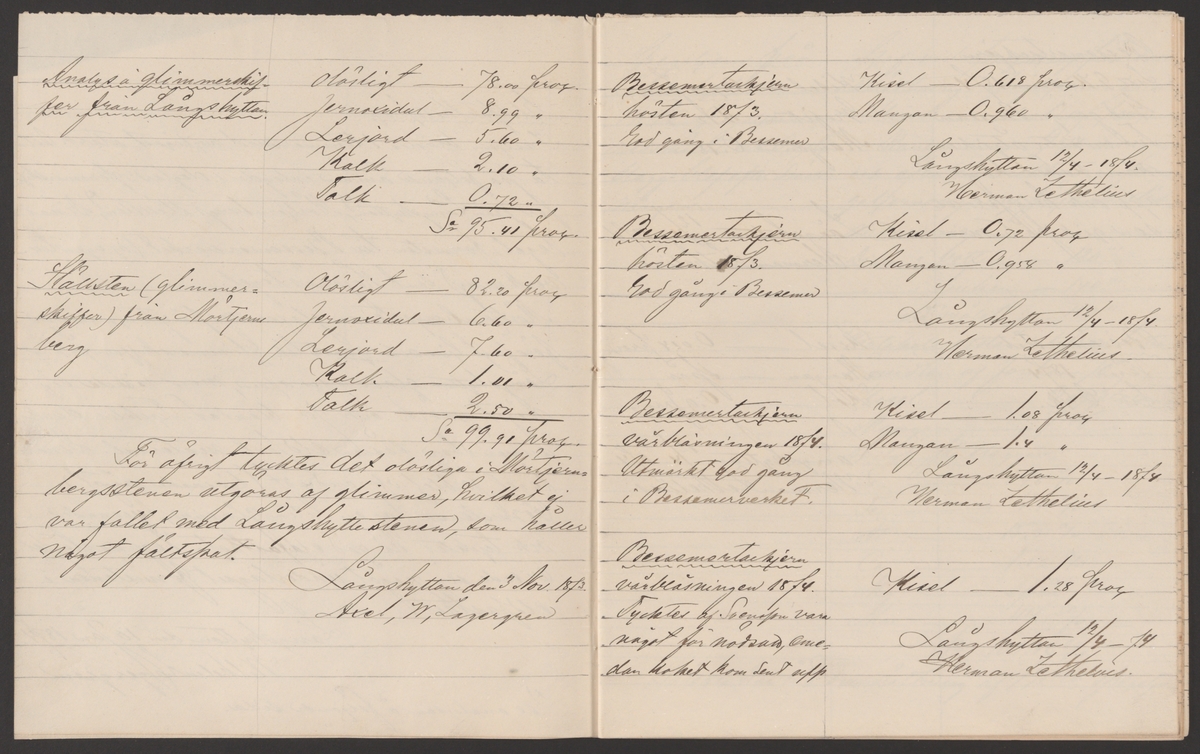 Analys å glimmerskif-
fer från Långshyttan.
Olösligt — 78.00 proc.
Jernoxidul — 8.99 "
Lerjord — 5.60 "
Kalk — 2.10 "
Talk — 0.72 "
Sa 95.41 proc.
Hällsten (glimmer=
skiffer) från Mörtjerns
berg
Olösligt — 82.20 proc
Jernoxidul — 6.60 "
Lerjord — 7.60 "
Kalk — 1.01 "
Talk — 2.50 "
Sa 99.91 proc.
För öfrigt tycktes det olösliga i Mörtjern=
bergsstenen utgöras af glimmer, hvilket ej
var fallet med Långshyttestenen, som håller
något fältspat.
Långshyttan den 3 Nov. 1873.
Axel, W, Lagergren
Bessemertackjern
hösten 1873.
God gång i Bessemer
Kisel — 0.618 proc.
Mangan — 0.960 "
Långshyttan 12/4 – 1874.
Herman Zethelius
Bessemertackjern
hösten 1873.
God gång i Bessemer
Kisel — 0.72 proc
Mangan — 0.958 "
Långshyttan 12/4 – 1874
Herman Zethelius.
Bessemertackjern
vårblåsningen 1874.
Utmärkt god gång
i Bessemerverket.
Kisel — 1.08 proc
Mangan — 1.4 "
Långshyttan 12/4 – 1874
Herman Zethelius
Bessemertackjern
vårblåsningen 1874.
Tycktes af Svensson vara
något för nödsatt, eme=
dan koket kom sent upp
Kisel — 1.28 proc
Långshyttan 12/4 – 74
Herman Zethelius.